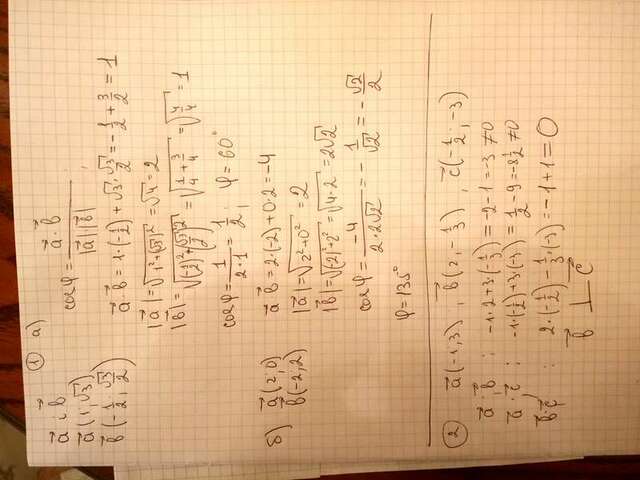 ① а)
a⃗ і b⃗
a⃗ (1; √3)
b⃗ (-1/2; √3/2)
cosφ = (a⃗ · b⃗) / (|a⃗| |b⃗|) ;
a⃗ · b⃗ = 1·(-1/2) + √3 · √3/2 = -1/2 + 3/2 = 1
|a⃗| = √(1² + (√3)²) = √4 = 2
|b⃗| = √((-1/2)² + (√3/2)²) = √(1/4 + 3/4) = √(4/4) = 1
cosφ = 1/(2·1) = 1/2 ; φ = 60°
б) a⃗ (2; 0) a⃗ b⃗ = 2·(-2) + 0·2 = -4
b⃗ (-2; 2)
|a⃗| = √(2² + 0²) = 2
|b⃗| = √((-2)² + 2²) = √(4·2) = 2√2
cosφ = -4/(2·2√2) = - 1/√2 = - √2/2
φ = 135°
② a⃗ (-1, 3) , b⃗ (2, -1/3) , c⃗ (-1/2; -3)
a⃗ · b⃗ : -1·2 + 3·(-1/3) = -2 - 1 = -3 ≠ 0
a⃗ · c⃗ : -1·(-1/2) + 3·(-3) = 1/2 - 9 = -8 1/2 ≠ 0
b⃗ · c⃗ : 2·(-1/2) - 1/3·(-3) = -1 + 1 = 0
b⃗ ⊥ c⃗